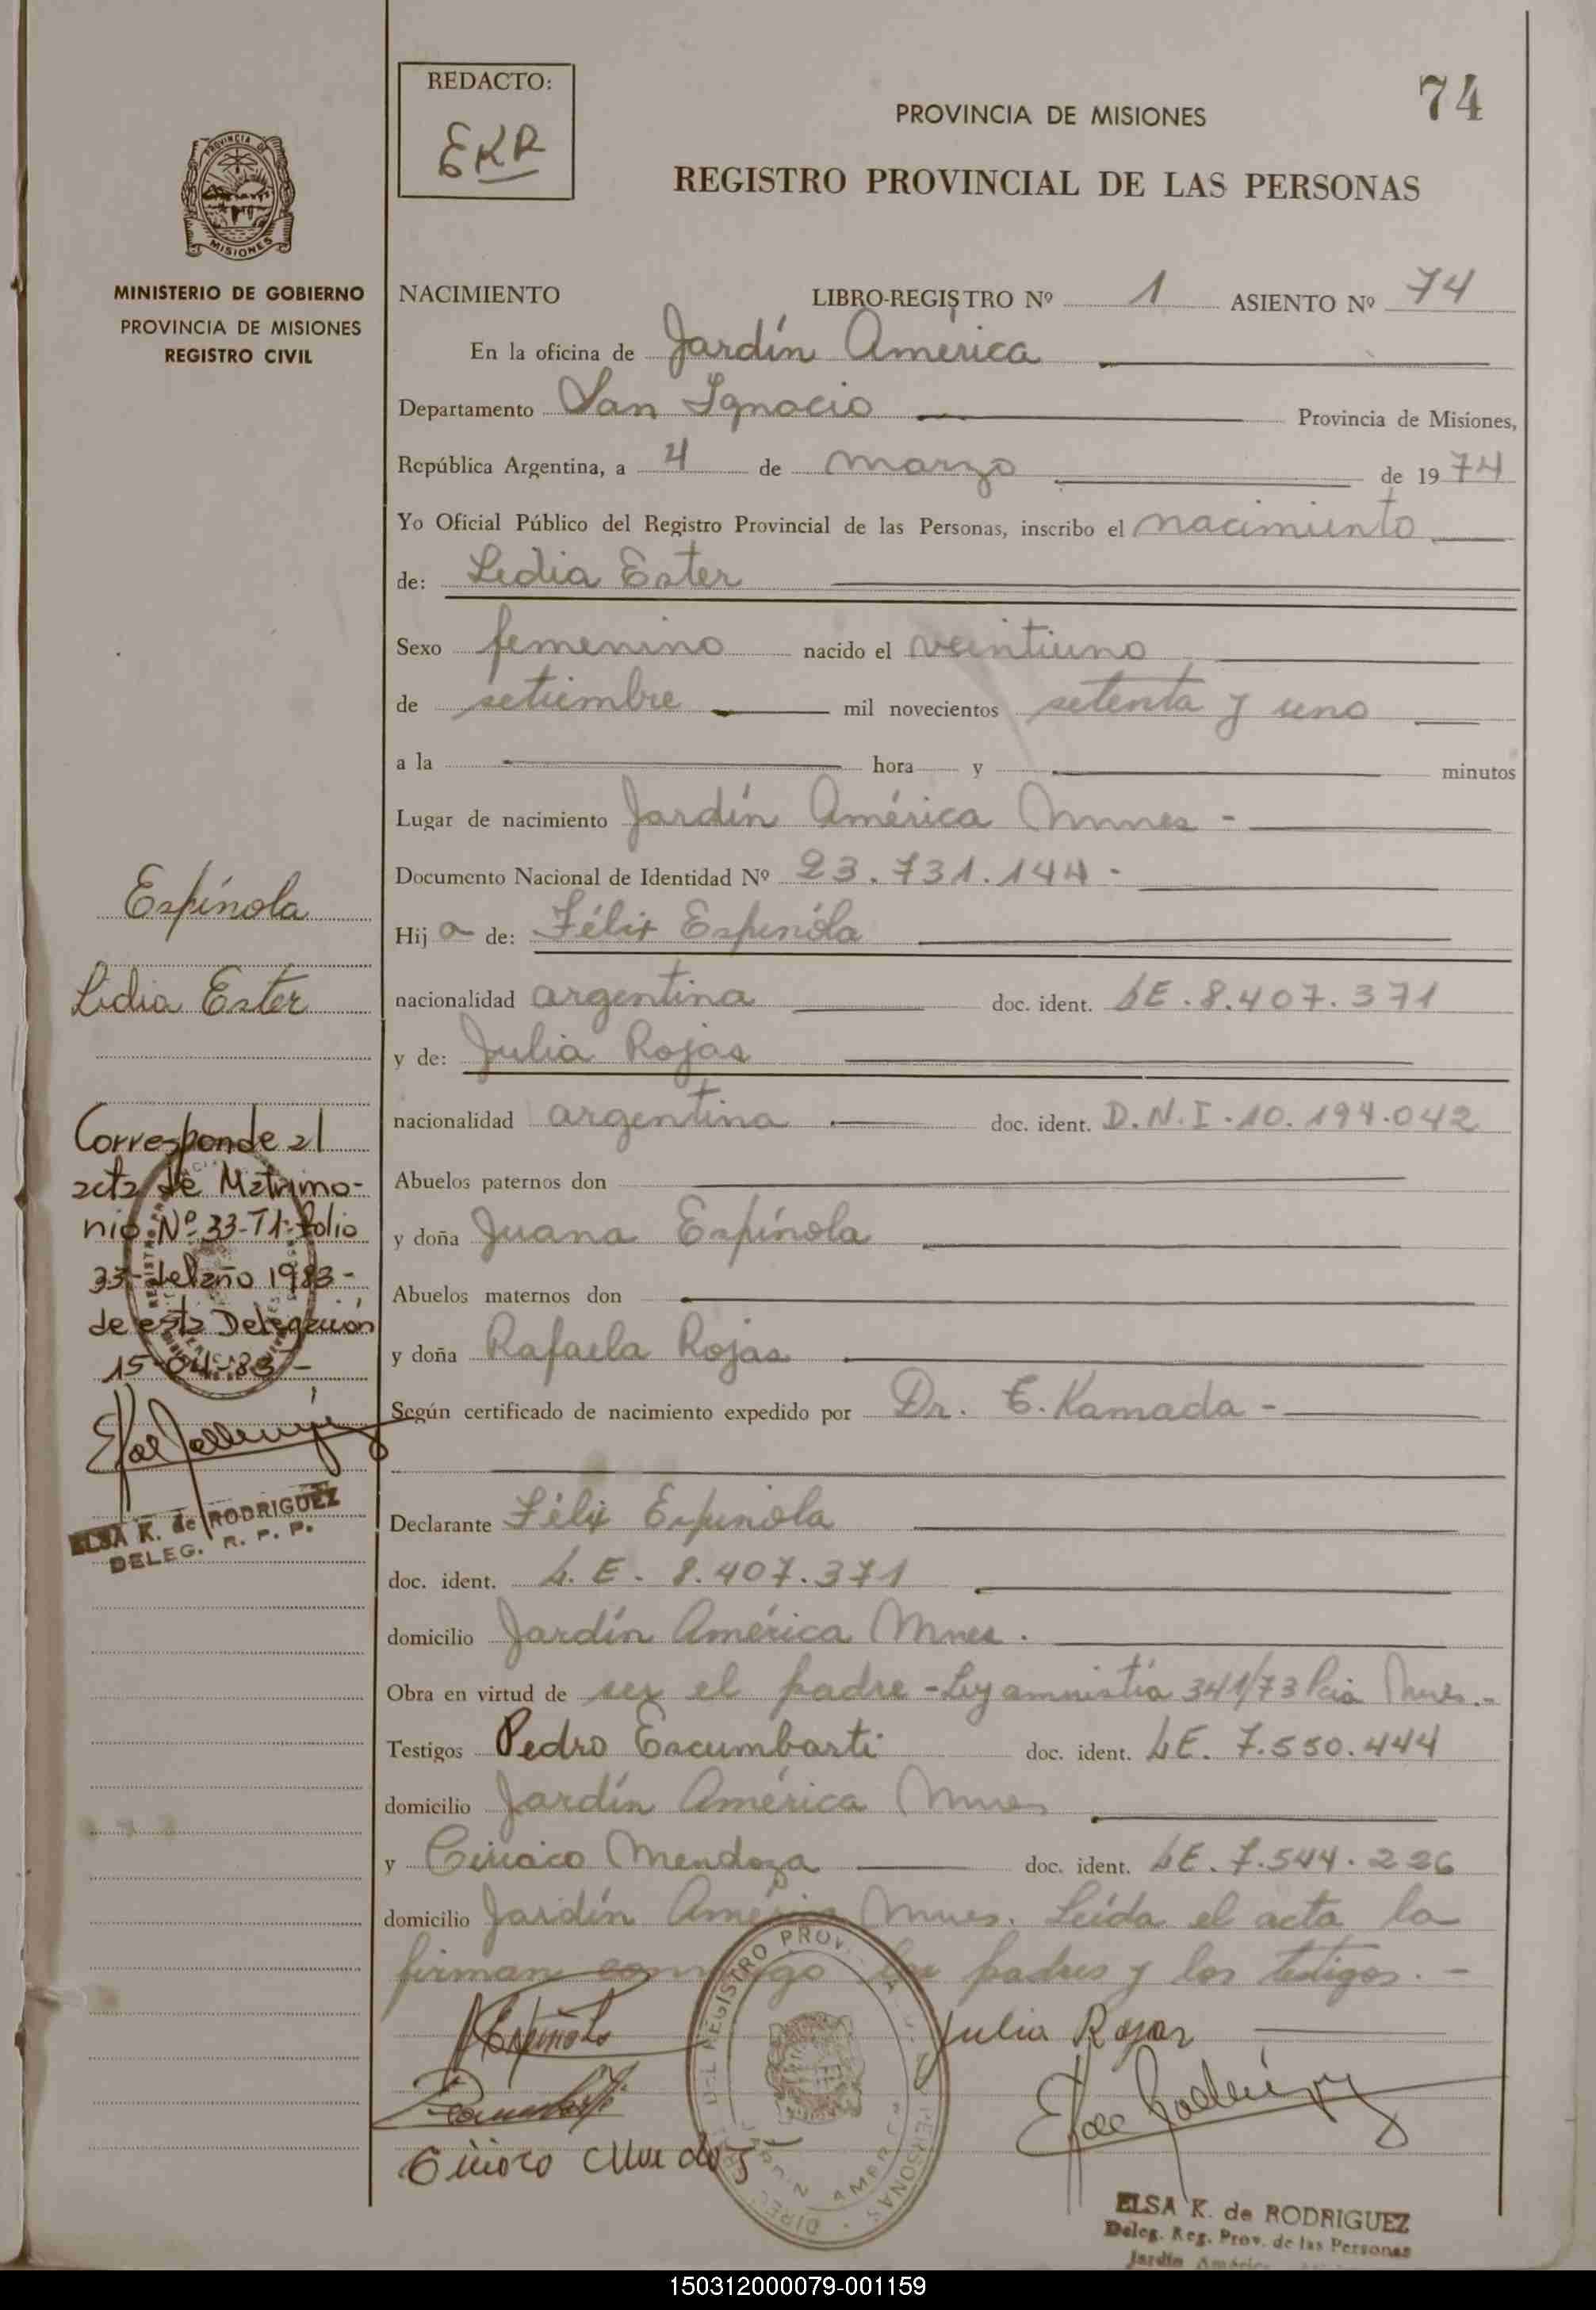 REDACTO:
EKR
74
PROVINCIA DE MISIONES
REGISTRO PROVINCIAL DE LAS PERSONAS
PROVINCIA DE
MISIONES
MINISTERIO DE GOBIERNO
PROVINCIA DE MISIONES
REGISTRO CIVIL
NACIMIENTO LIBRO-REGISTRO Nº 1 ASIENTO Nº 74
En la oficina de Jardín América
Departamento San Ignacio Provincia de Misiones,
República Argentina, a 4 de marzo de 1974
Yo Oficial Público del Registro Provincial de las Personas, inscribo el nacimiento
de: Lidia Ester
Sexo femenino nacido el veintiuno
de setiembre mil novecientos setenta y uno
a la hora y minutos
Lugar de nacimiento Jardín América Mnes -
Documento Nacional de Identidad Nº 23.731.144 -
Hija de: Félix Espínola
nacionalidad argentina doc. ident. LE. 8.407.371
y de: Julia Rojas
nacionalidad argentina doc. ident. D.N.I. 10.194.042
Abuelos paternos don
y doña Juana Espínola
Abuelos maternos don
y doña Rafaela Rojas
Según certificado de nacimiento expedido por Dr. E. Kamada -
Declarante Félix Espínola
doc. ident. L.E. 8.407.371
domicilio Jardín América Mnes.
Obra en virtud de ser el padre - Ley amnistía 341/73 Pcia Mnes.-
Testigos Pedro Escumbarti doc. ident. LE. 7.550.444
domicilio Jardín América Mnes
y Ciriaco Mendoza doc. ident. LE. 7.544.226
domicilio Jardín América Mnes. Leída el acta la
firman conmigo los padres y los testigos. -
Julia Rojas
ELSA K. de RODRIGUEZ
Deleg. Reg. Prov. de las Personas
Jardín América
Espínola
Lidia Ester
Corresponde al
acta de Matrimo-
nio Nº 33-T1-folio
33-del año 1983-
de esta Delegación
15-04-83-
ELSA K. de RODRIGUEZ
DELEG. R. P. P.
150312000079-001159